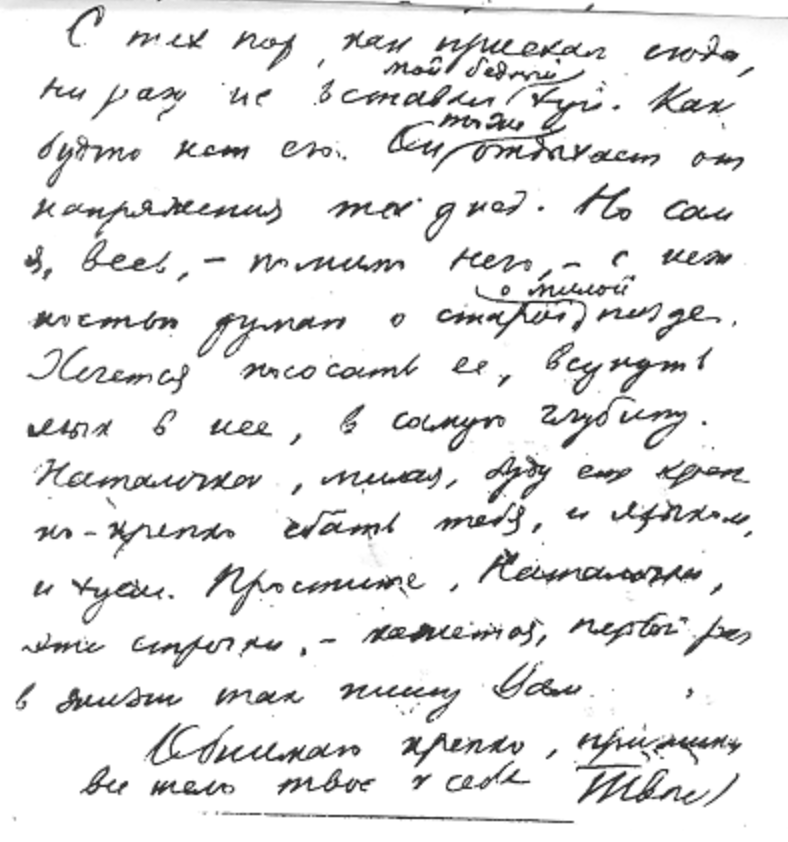 С тех пор, как приехал сюда,
мой бедный
ни разу не вставал хуй. Как
тоже
будто нет его. Он отдыхает от
напряжения тех дней. Но сам
я, весь, – помимо него, – с неж
о милой
ностью думаю о старой пизде.
Хочется пососать ее, всунуть
язык в нее, в самую глубину.
Наталочка, милая, буду еще креп
ко-крепко ебать тебя, и языком,
и хуем. Простите, Наталочка,
эти строчки, – кажется, первый раз
в жизни так пишу Вам.
Обнимаю крепко, прижимаю
все тело твое к себе Твой